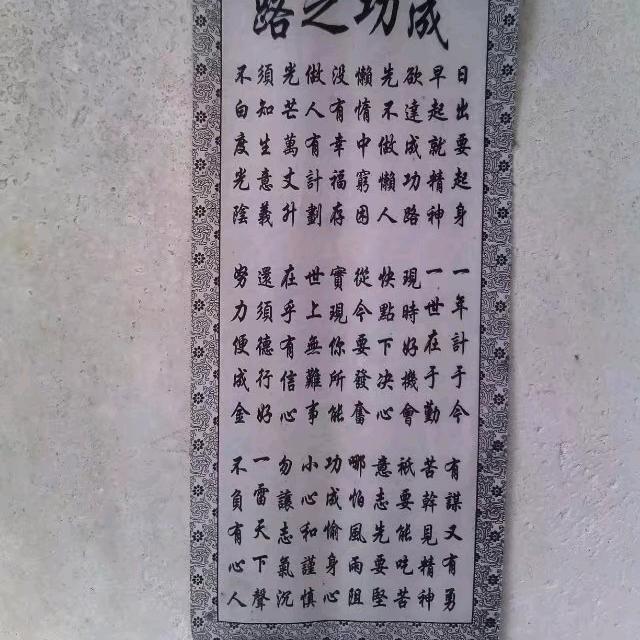 成功之路
日出要起身
早起就精神
欲達成功路
先不做懶人
懶惰中窮困
没有幸福存
做人有計劃
光芒萬丈升
須知生意義
不白度光陰
一年計于今
一世在于勤
現時好機會
快點下決心
從今要發奮
實現你所能
世上無難事
在乎有信心
還須德行好
努力便成金
有謀又有勇
苦幹見精神
祇要能吃苦
意志先要堅
哪怕風雨阻
功成愉身心
小心和謹慎
勿讓志氣沉
一雷天下聲
不負有心人